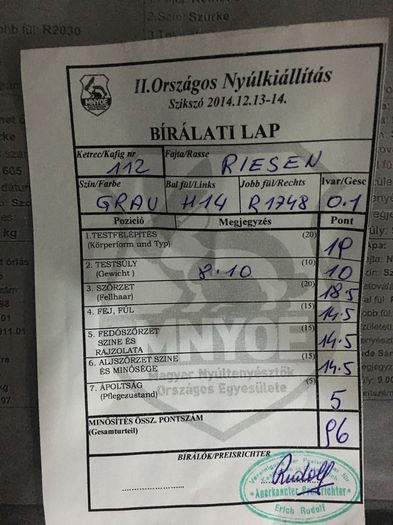 bb fül: R2030
2.Szín: Szürke
MNYOE
II.Országos Nyúlkiállítás
Szikszó 2014.12.13-14.
BÍRÁLATI LAP
Ketrec/Kafig nr 112 Fajta/Rasse RIESEN
Szín/Farbe GRAU Bal fül/Links H14 Jobb fül/Rechts R1748 Ivar/Gesc 0.1
Pozíció Megjegyzés Pont
1.TESTFELÉPÍTÉS (20) 19
(Körperform und Typ)
2. TESTSÚLY (10) 8.10 10
(Gewicht)
3. SZŐRZET (20) 18.5
(Fellhaar)
4. FEJ, FÜL (15) 14.5
5. FEDŐSZŐRZET (15) 14.5
SZINE ÉS
RAJZOLATA
6. ALJSZŐRZET SZINE (15) 14.5
ÉS MINŐSÉGE
MNYOE
Magyar Nyúltenyésztők
Országos Egyesülete
7. ÁPOLTSÁG (5) 5
(Pflegezustand)
MINŐSÍTÉS ÖSSZ. PONTSZÁM 96
(Gesamturteil)
BÍRÁLÓK/PREISRICHTER
Rudolf
Anerkannter Preisrichter
Erich Rudolf